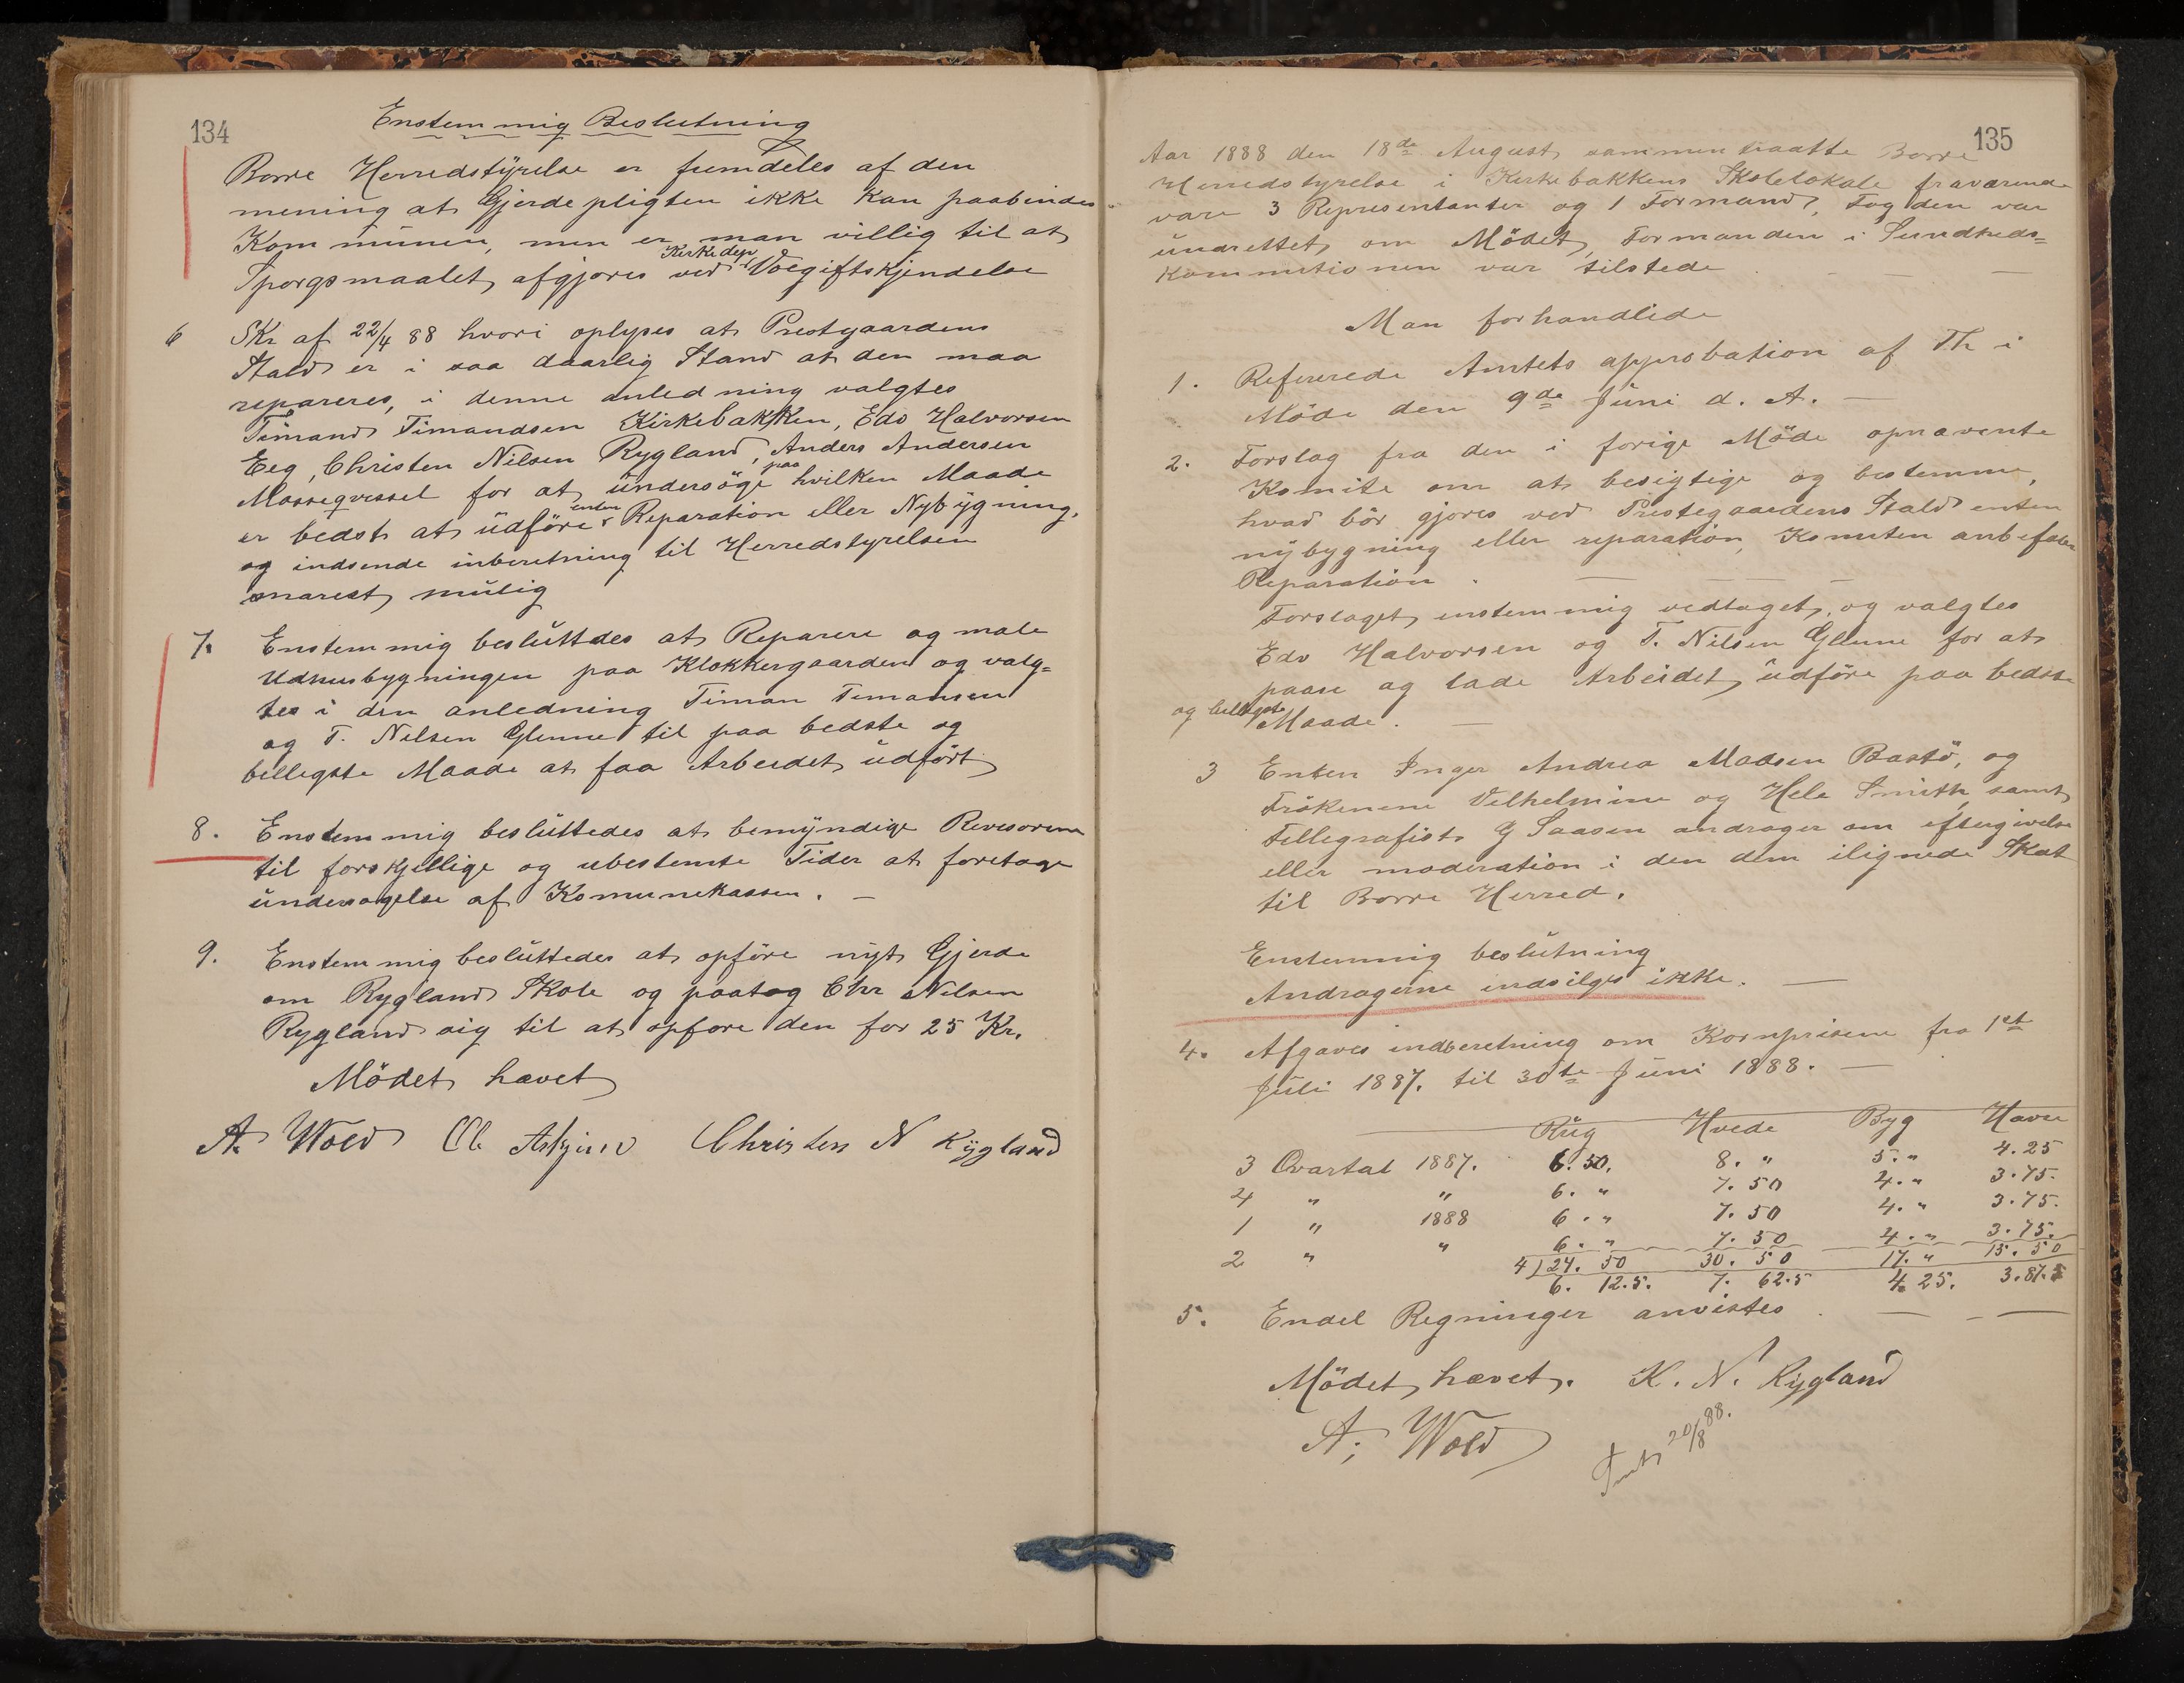 134
Enstemmig Beslutning
Borre Herredstÿrelse er fremdeles af den
mening at Gjerdepligten ikke kan paabindes
Kommünen, men er man villig til at
Kirkedep
Sporgsmaalet afgjøres ved Voegiftskjendelse
6 SKr af 22/4 88 hvori oplyses at Prestgaardens
Stald er i saa daarlig Stand at den maa
repareres, i denne anledning valgtes
Timand Timandsen Kirkebakken, Edv Halvorsen
Eeg, Christen Nilsen Rygland, Anders Andersen
Masseqvessel for at ündersöge paa hvilken Maade
er bedst at üdföre enten Reparation eller Nybÿgning,
og indsende inberetning til Herredstyrelsen
snarest mülig
7. Enstemmig beslüttdes at Reparere og male
Udhusbygningen paa Klokkergaarden og valg=
tes i den anledning Timan Timansen
og T. Nilsen Glenne til paa bedste og
billigste Maade at faa Arbeidet üdfört
8. Enstemmig beslüttedes at bemÿndige Revesorene
til forskjellige og ubestemte Tider at foretage
ündersogelse af Komunekassen. —
9. Enstemmig beslüttedes at opföre nÿt Gjerde
om Rygland Skole og paatog Chr Nilsen
Rygland sig til at opfore den for 25 Kr.
Mödet hævet
A. Wold Christen N Rÿgland
135
Aar 1888 den 18de August sammentraatte Borre
Herredstyrelse i Kirkebakkens Skolelokale fraværende
vare 3 Representanter og 1 Formand, Fogden var
ündrettet om Mödet, Formanden i Sundheds=
kommitionen var tilstede — —
Man forhandlede
1. Refererede Amtets approbation af Th i
Möde den 9de Jüni d. A. —
2. Forslag fra den i forige Möde opnævnte
Komite om at besigtige og bestemme,
hvad bör gjores ved Prestegaardens Stald enten
nÿbygning eller reparation, Komiten anbefaler
Reparation. — — —
Forslaget enstemmig vedtaget, og valgtes
Edv Halvorsen og T. Nilsen Glenne for at
paase og lade Arbeidet üdföre paa bedste
og billigste Maade. —
3 Enken Inger Andrea Madsen Bastö, og
Frökenene Vilhelmine og Hele Smith, samt
Tellegrafist G Saasen andrager om eftergivelse
eller moderation i den dem ilignede Skat
til Borre Herred.
Enstemmig beslütning
Andragerne indvilges ikke. —
4. Afgaves indberetning om Kornprisene fra 1st
Jüli 1887. til 30te Jüni 1888. —
Rüg Hvede Byg Havre
3 Qvartal 1887. 6.50. 8. " 5. " 4.25
4 " " 6. " 7.50 4. " 3.75.
1 " 1888 6. " 7.50 4. " 3.75.
2 " " 6. " 7.50 4. " 3.75.
4 | 24.50 30.50 17. " 15.50
6. 12.5. 7. 62.5 4.25. 3.87.5
5. Endel Regninger anvistes. — — —
Mödet hævet. K. N. Rÿgland
A. Wold
20/8 88.